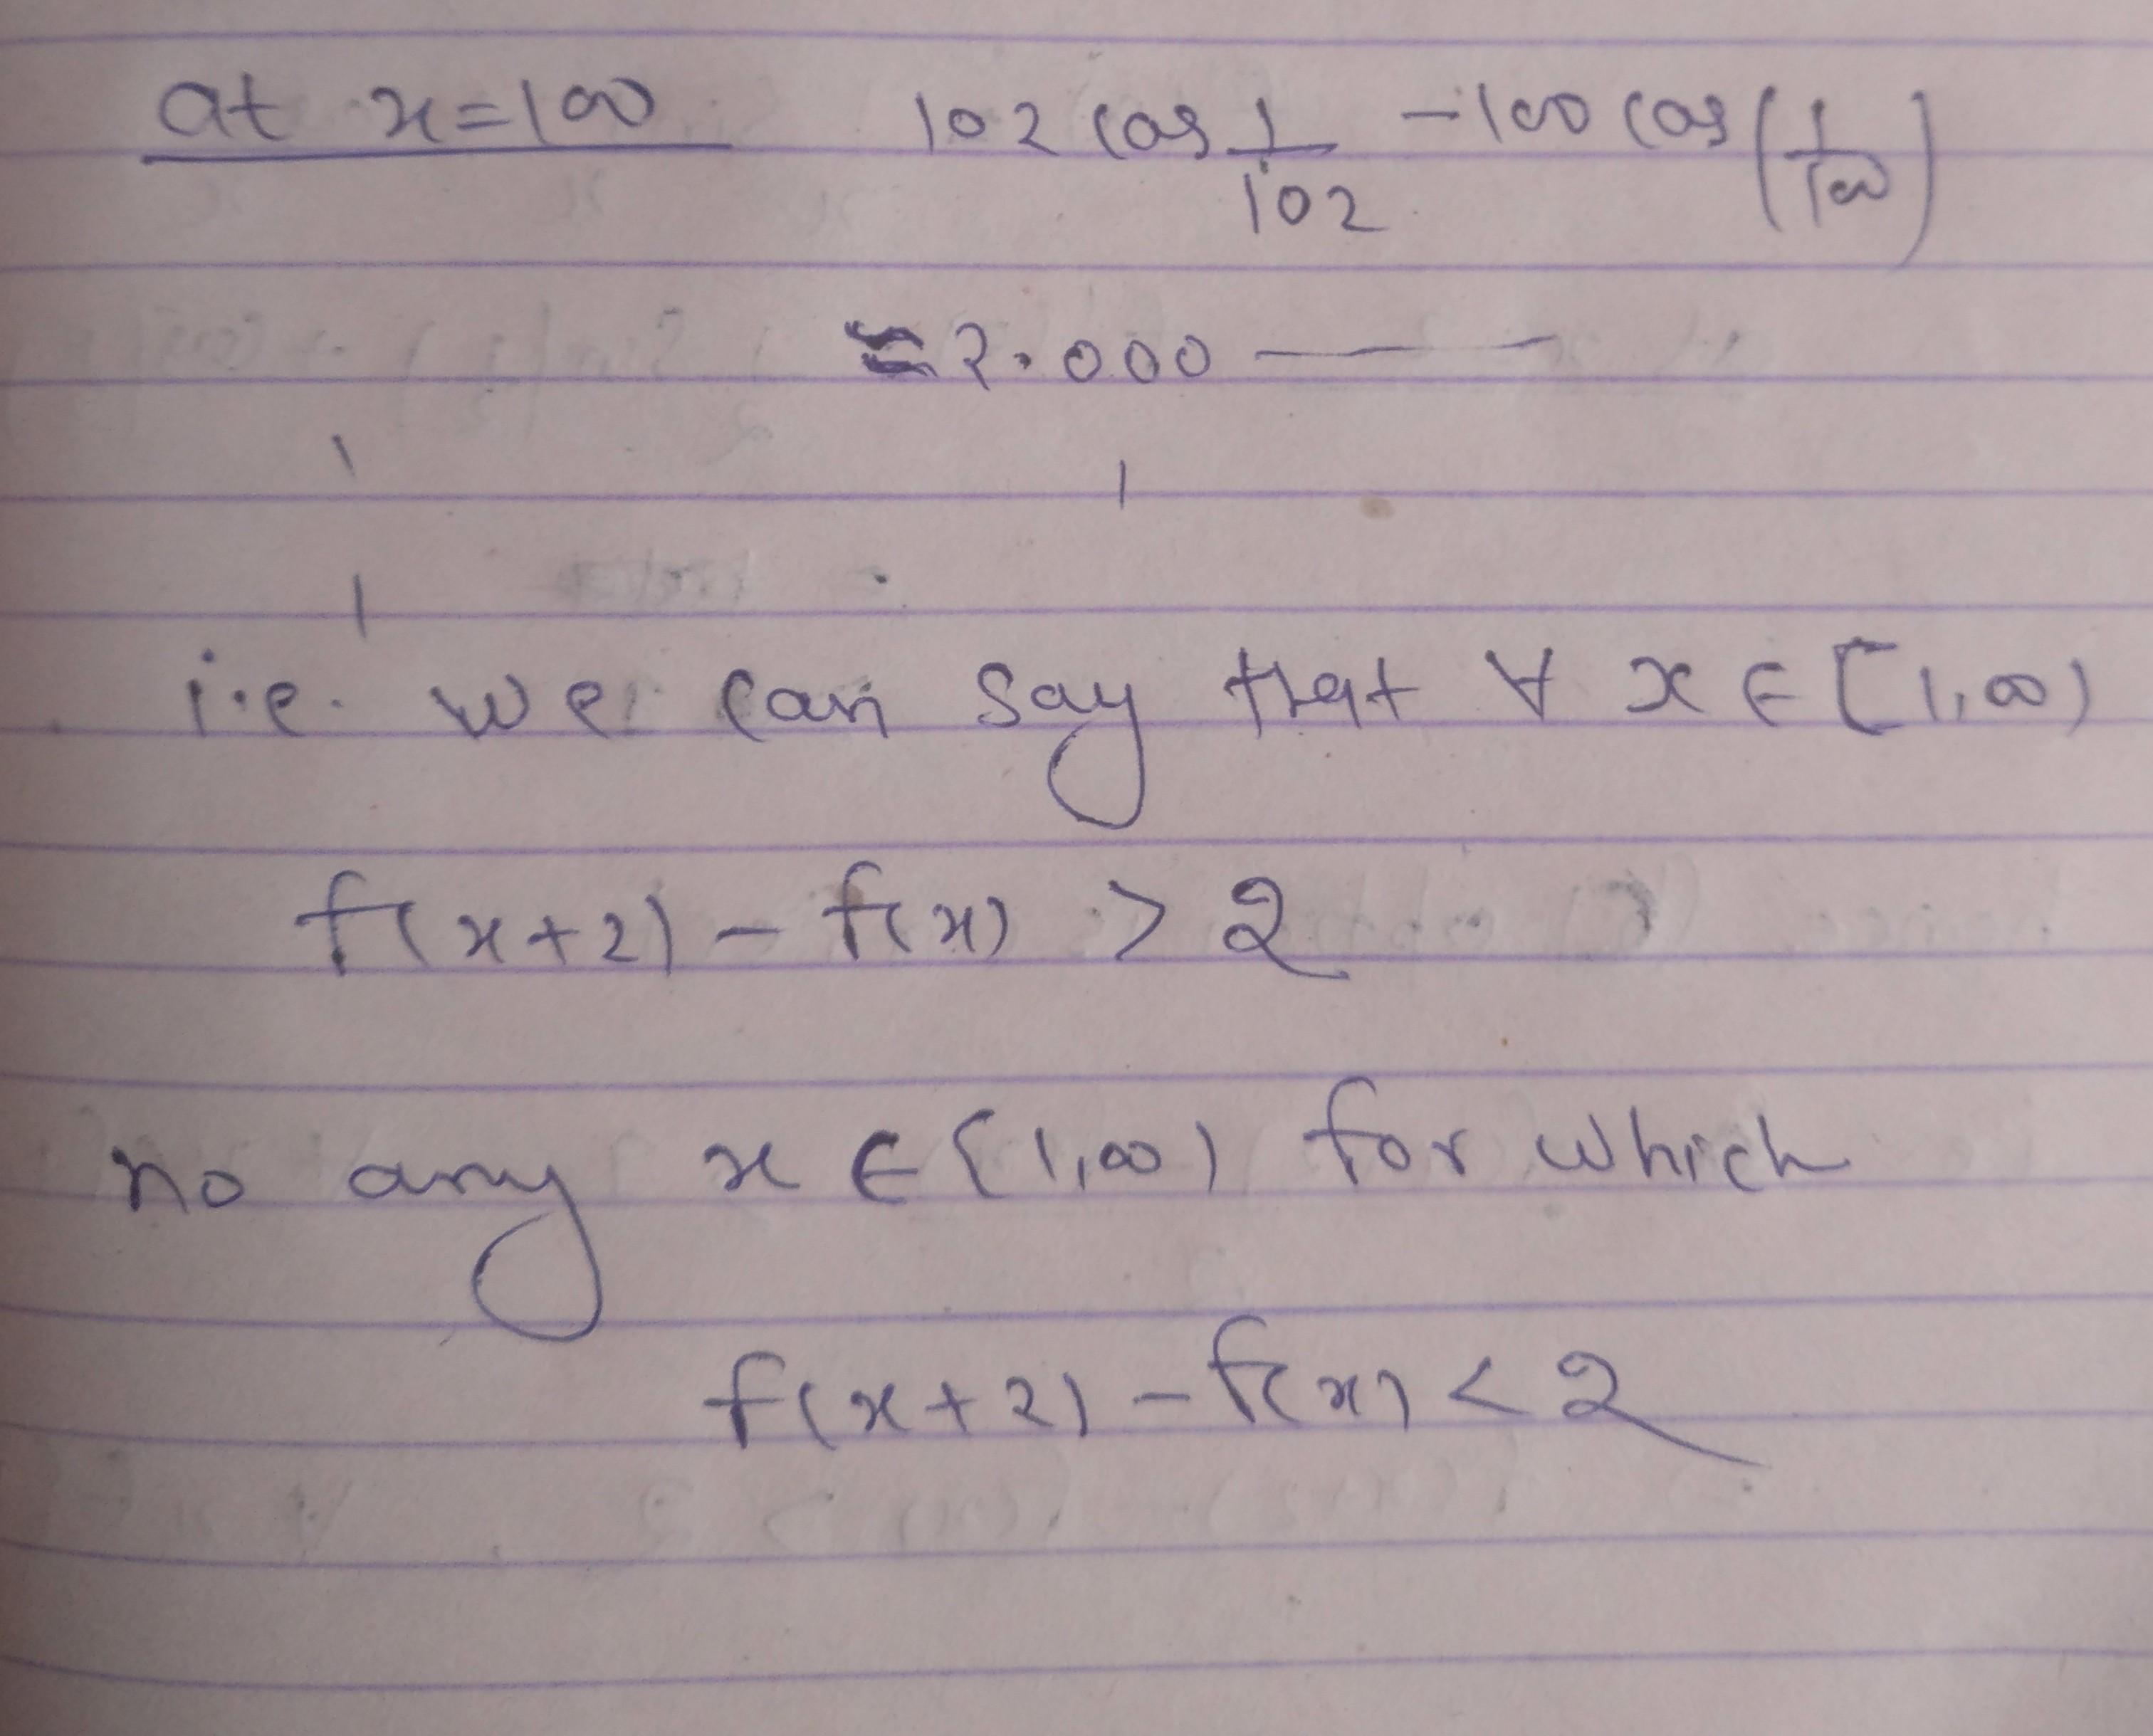 at x=100 102 cos 1/102 -100 cos(1/100)
=2.000 — -
i.e. we can say that ∀ x ∈ [1,∞)
f(x+2) - f(x) > 2
no any x ∈ [1,∞) for which
f(x+2) - f(x) < 2